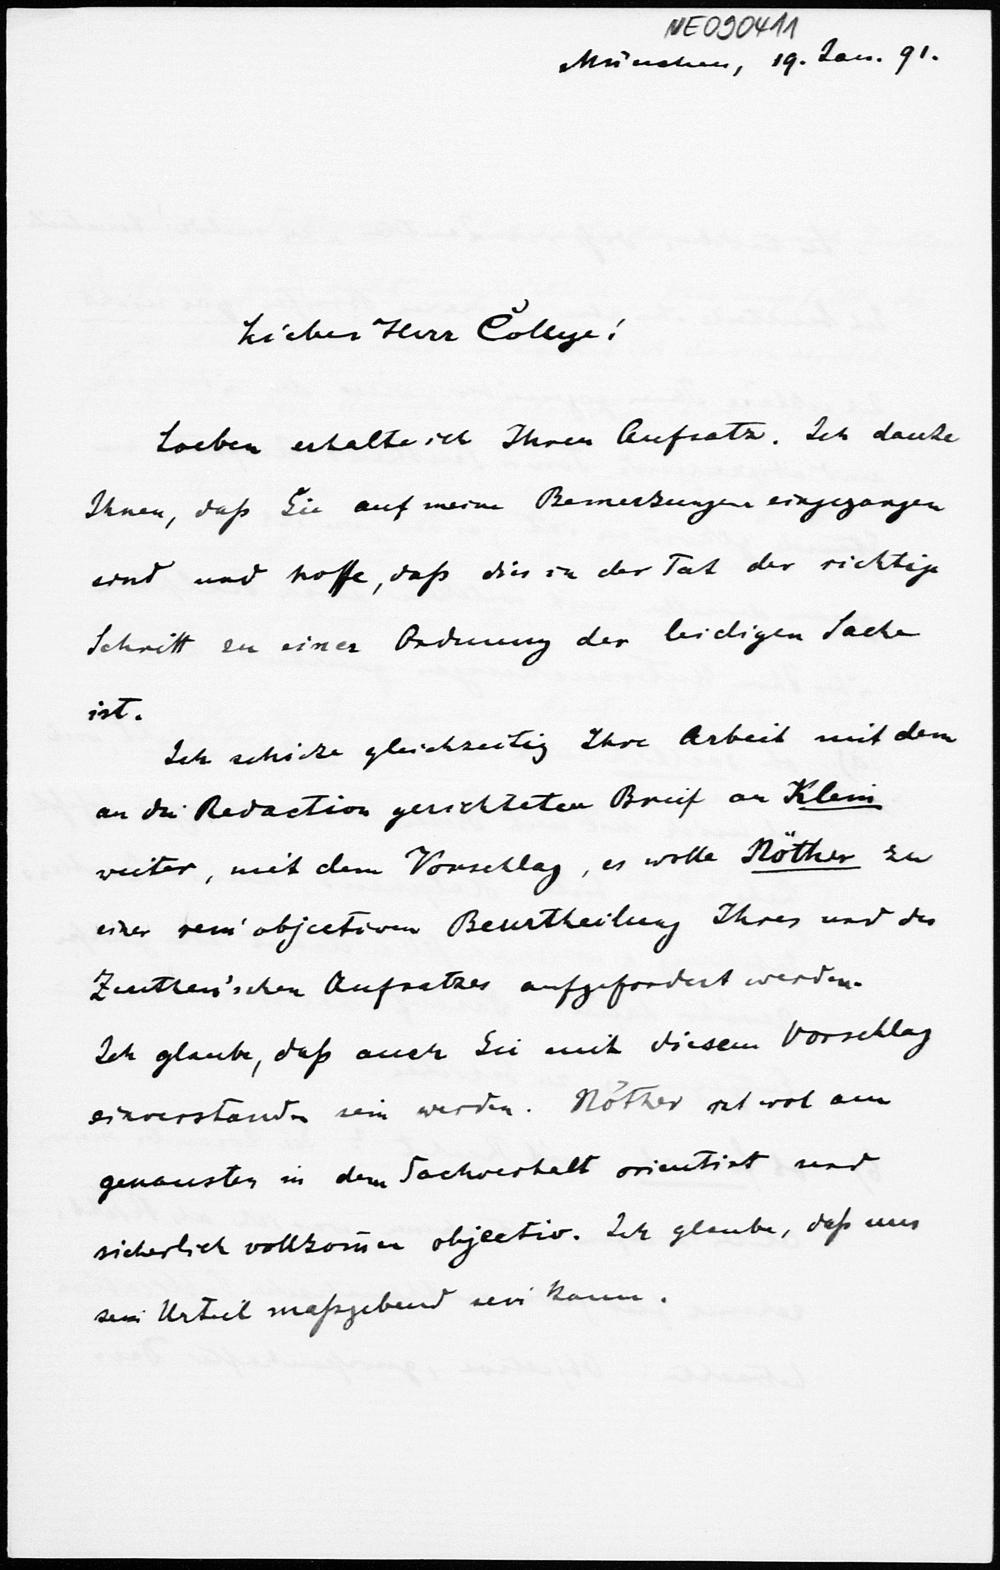 NE090411
München, 19. Jan. 91.
Lieber Herr College!
Soeben erhalte ich Ihren Aufsatz. Ich danke
Ihnen, daß Sie auf meine Bemerkungen eingegangen
sind und hoffe, daß dies in der Tat der richtige
Schritt zu einer Ordnung der leidigen Sache
ist.
Ich schicke gleichzeitig Ihre Arbeit mit dem
an die Redaction gerichteten Brief an Klein
weiter, mit dem Vorschlag, es wolle Nöther zu
einer rein objectiven Beurtheilung Ihres und des
Zeuthen'schen Aufsatzes aufgefordert werden.
Ich glaube, daß auch Sie mit diesem Vorschlag
einverstanden sein werden. Nöther ist wol am
genausten in dem Sachverhalt orientirt und
sicherlich vollkom̅en objectiv. Ich glaube, daß uns
sein Urteil maßgebend sein kann.